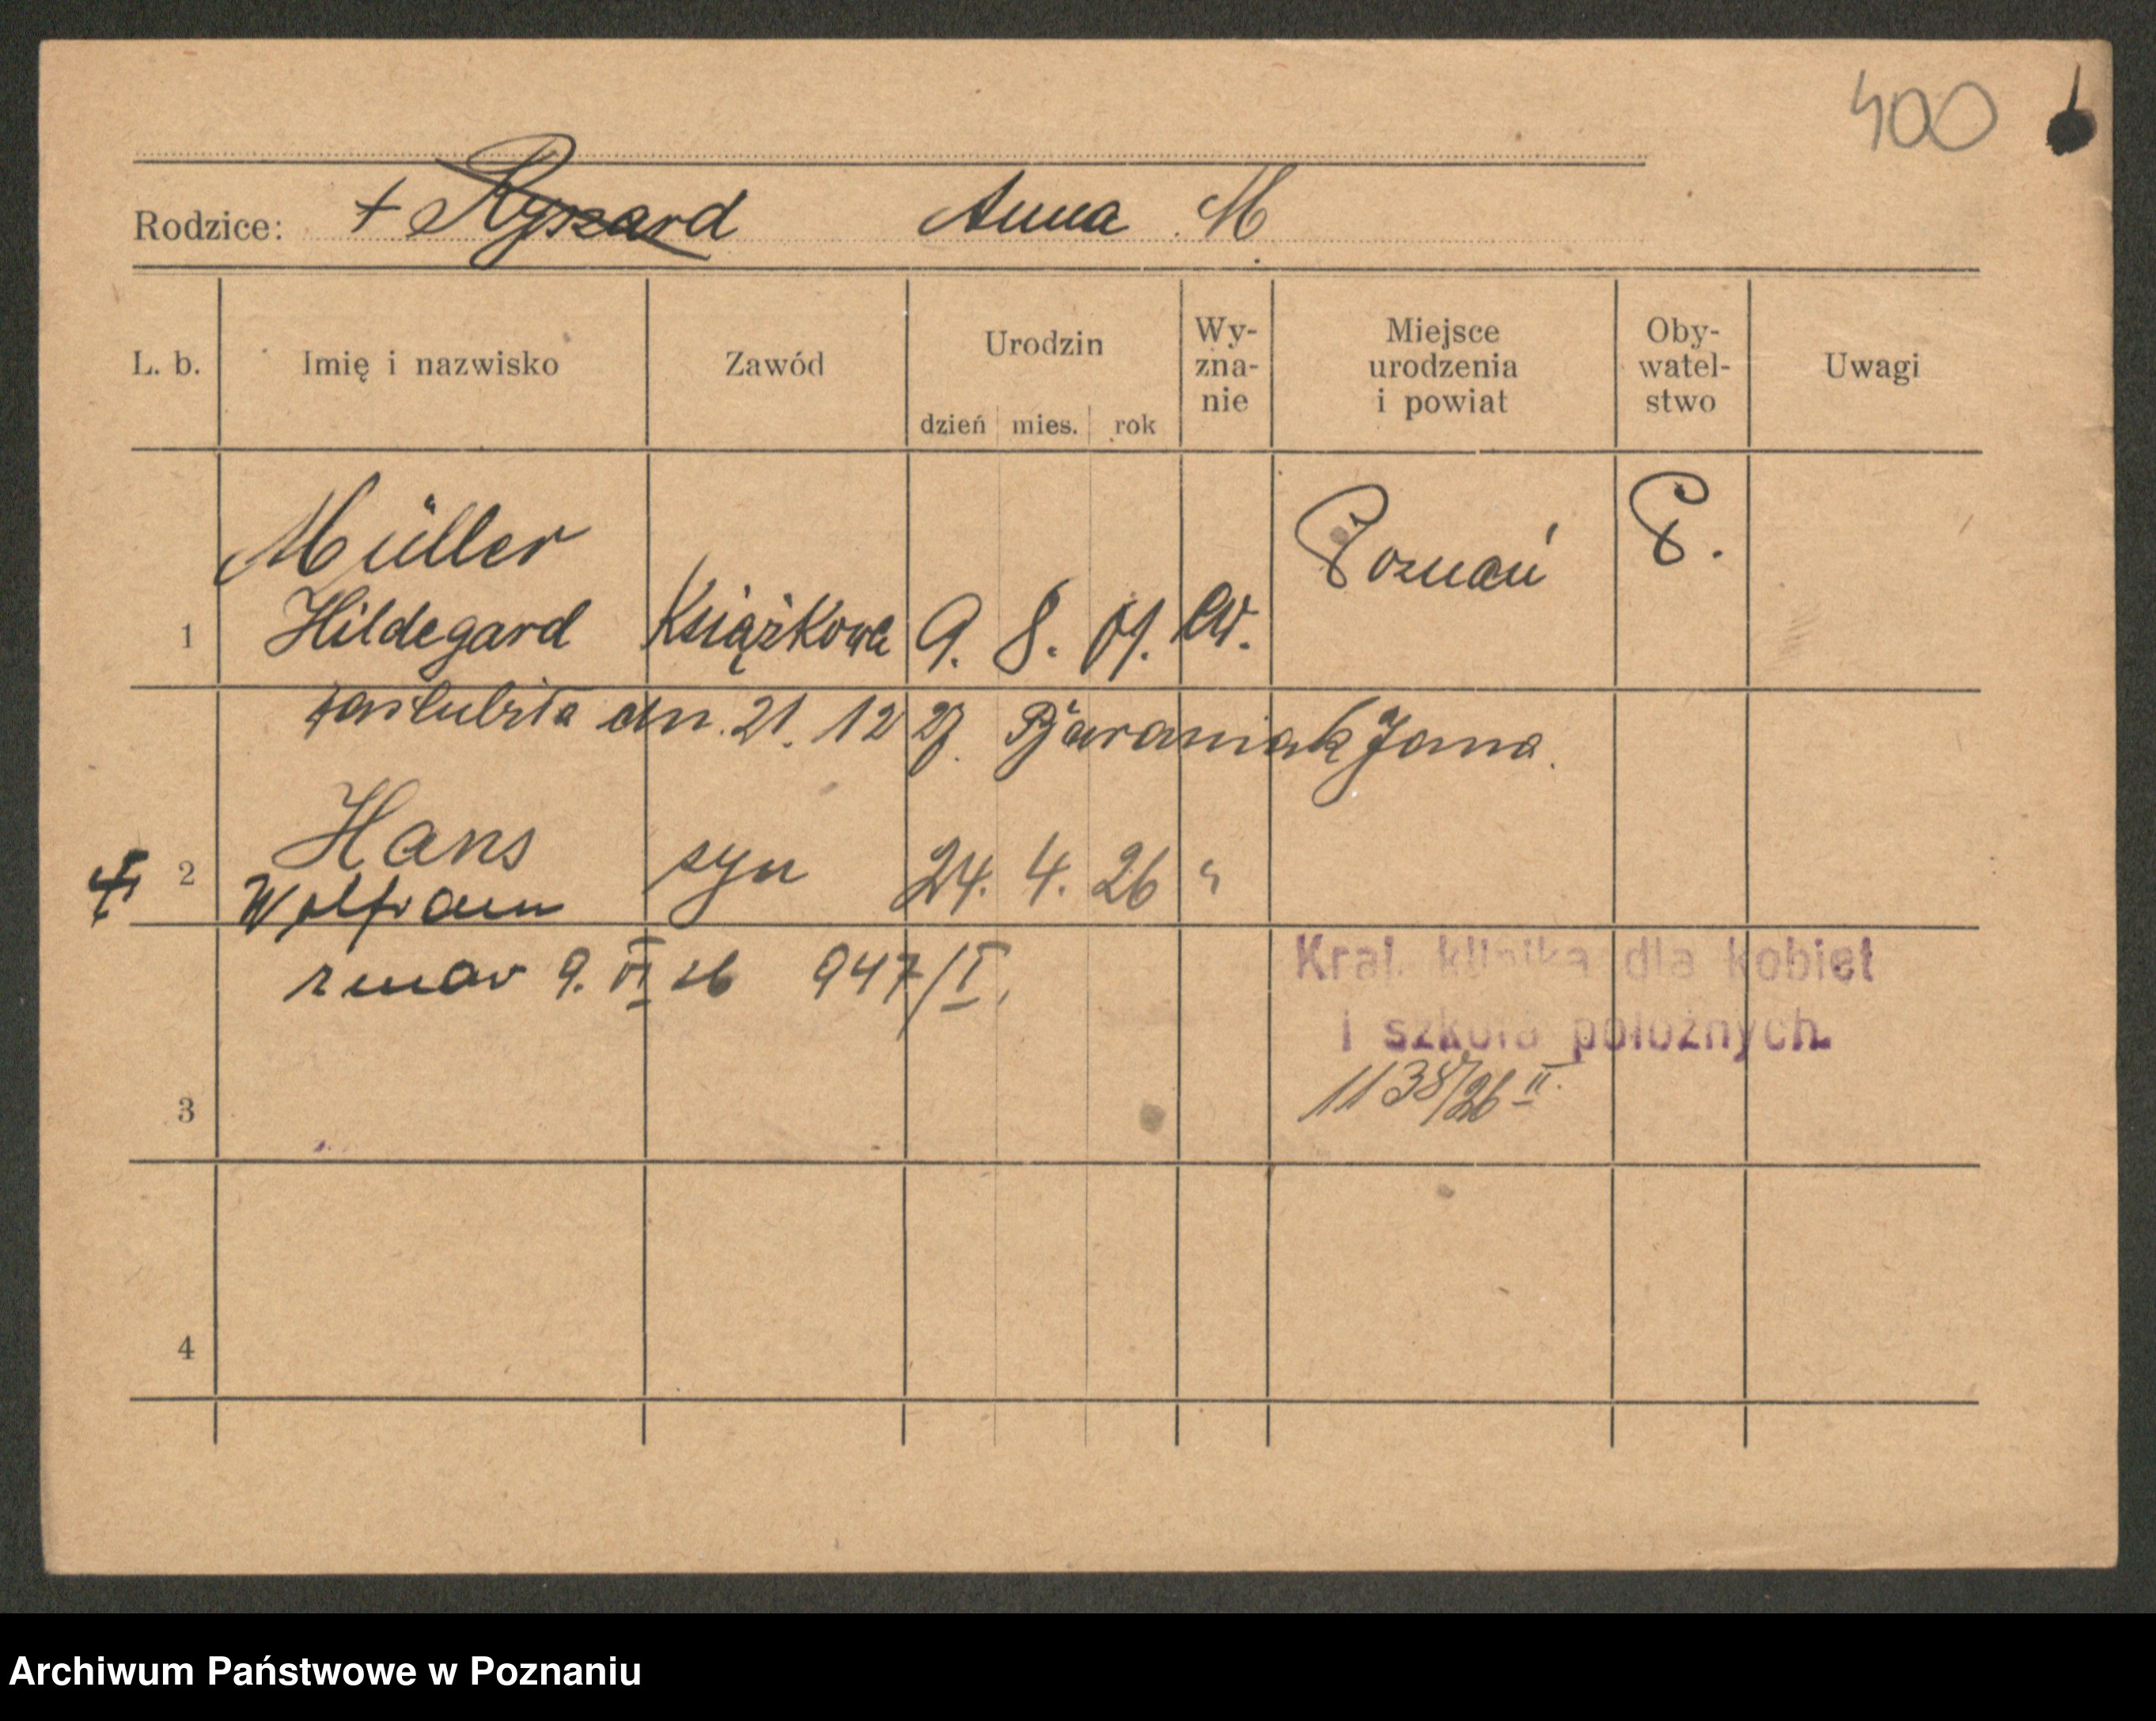 400
Rodzice: + Ryszard Anna M
L. b. Imię i nazwisko Zawód Urodzin dzień mies. rok Wy-zna-nie Miejsce urodzenia i powiat Oby-watel-stwo Uwagi
Müller Poznań P.
1 Hildegard Książkowa 9. 8. 01. ew.
zaślubiła dn. 21. 12 27. Jana.
Hans syn 24. 4. 26 "
2 Wolfram
zmar 9. VI 26 947/I.
Kraj. klinika dla kobiet
i szkoła położnych.
1138/26 II.
3
4
Archiwum Państwowe w Poznaniu